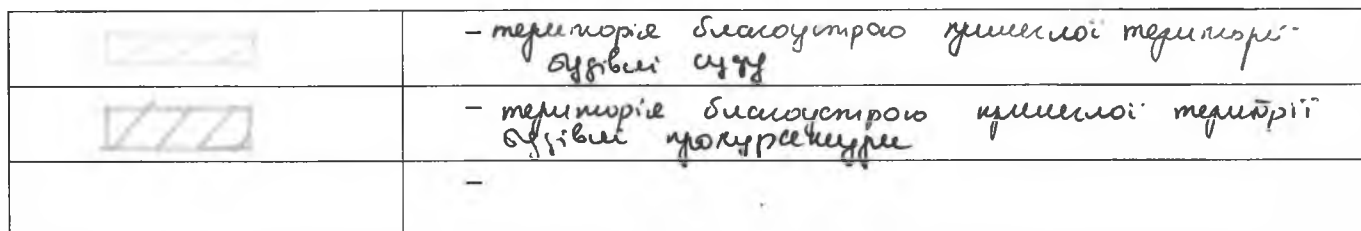 – територія благоустрою прилеглої території
будівлі суду
– територія благоустрою прилеглої території
будівлі прокуратури
–